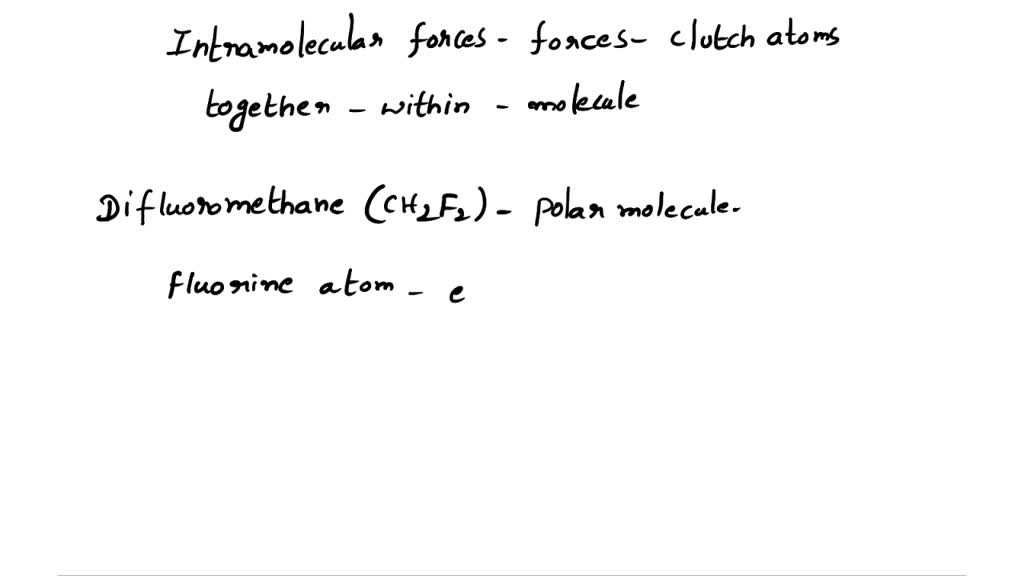 Intramolecular forces - forces - clutch atoms
together - within - molecule
Difluoromethane (CH2F2) - polar molecule.
fluorine atom - e